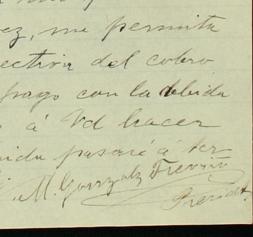 ez, me permita
ectiva del cobro
pago con la debida
á Vd hacer
pasaré á ver
M. Gonzalz Treviño
Presidt